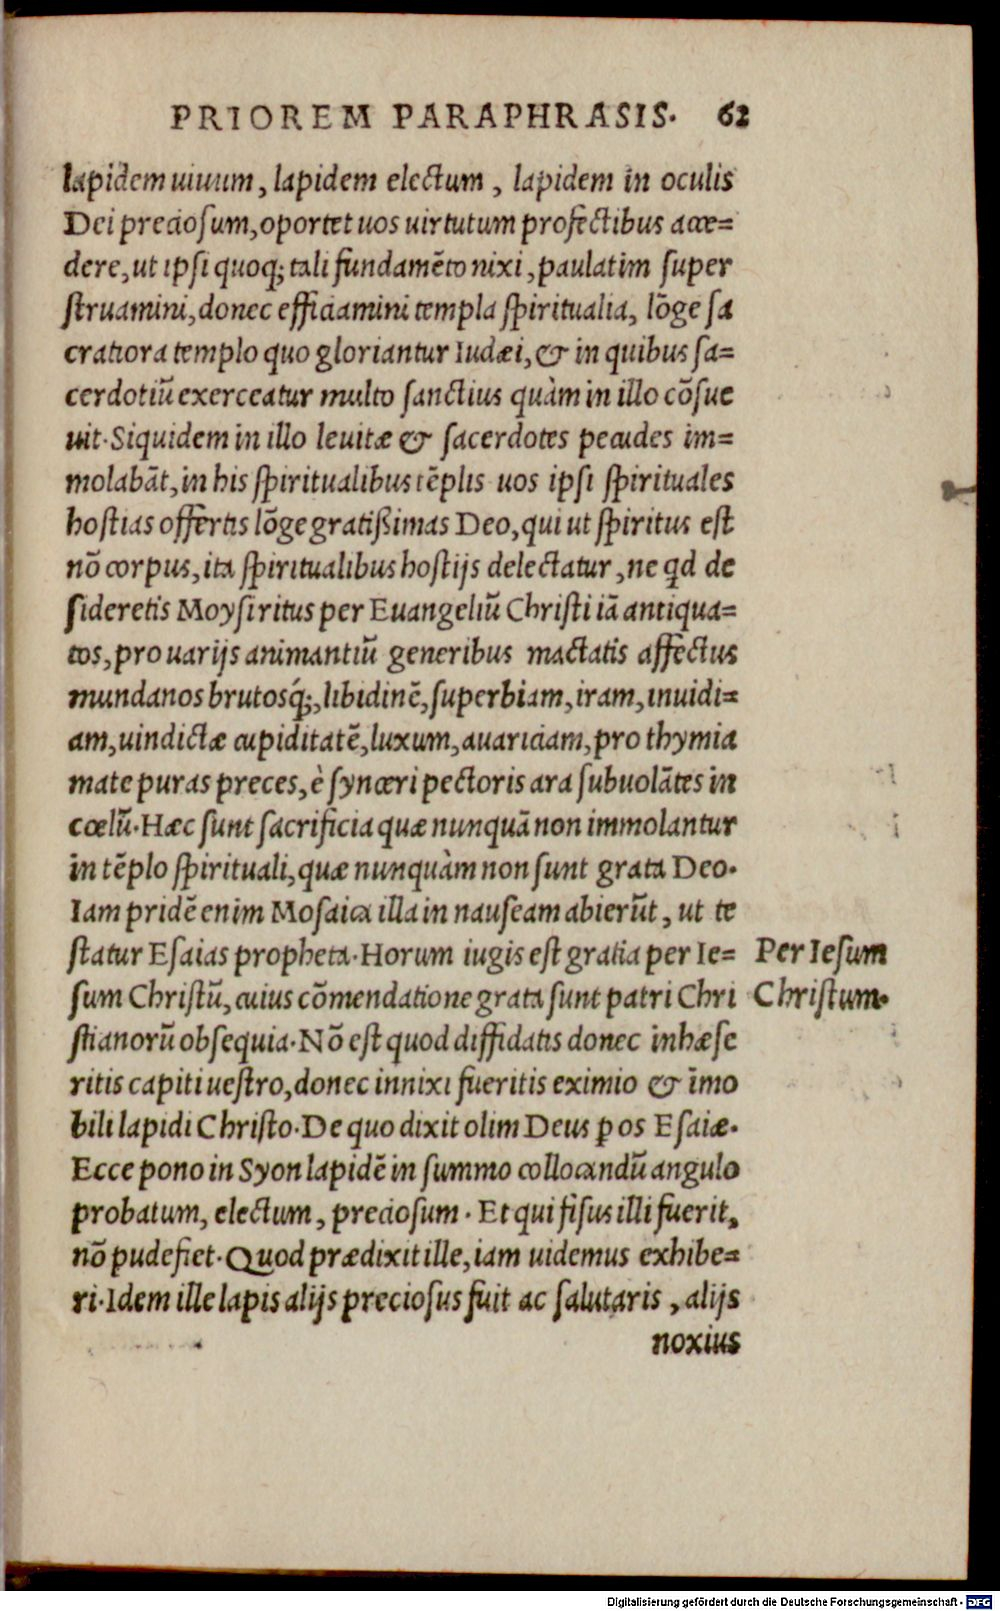 PRIOREM PARAPHRASIS. 62
lapidem uiuum, lapidem electum, lapidem in oculis
Dei preciosum, oportet uos uirtutum profectibus acce=
dere, ut ipsi quoq; tali fundamēto nixi, paulatim super
struamini, donec efficiamini templa spiritualia, lōge sa
cratiora templo quo gloriantur Iudæi, & in quibus sa=
cerdotiū exerceatur multo sanctius quàm in illo cōsue
uit. Siquidem in illo leuitæ & sacerdotes pecudes im=
molabāt, in his spiritualibus tēplis uos ipsi spirituales
hostias offertis lōge gratißimas Deo, qui ut spiritus est
nō corpus, ita spiritualibus hostijs delectatur, ne qd de
sideretis Moysi ritus per Euangeliū Christi iā antiqua=
tos, pro uarijs animantiū generibus mactatis affectus
mundanos brutosq́;, libidinē, superbiam, iram, inuidi=
am, uindictæ cupiditatē, luxum, auariciam, pro thymia
mate puras preces, è synceri pectoris ara subuolātes in
cœlū. Hæc sunt sacrificia quæ nunquā non immolantur
in tēplo spirituali, quæ nunquàm non sunt grata Deo.
Iam pridē enim Mosaica illa in nauseam abierūt, ut te
statur Esaias propheta. Horum iugis est gratia per Ie=
Per Iesum
sum Christū, cuius cōmendatione grata sunt patri Chri
Christum.
stianorū obsequia. Nō est quod diffidatis donec inhæse
ritis capiti uestro, donec innixi fueritis eximio & īmo
bili lapidi Christo. De quo dixit olim Deus ꝑ os Esaiæ.
Ecce pono in Syon lapidē in summo collocandū angulo
probatum, electum, preciosum. Et qui fisus illi fuerit,
nō pudefiet. Quod prædixit ille, iam uidemus exhibe=
ri. Idem ille lapis alijs preciosus fuit ac salutaris, alijs
noxius
Digitalisierung gefördert durch die Deutsche Forschungsgemeinschaft - DFG